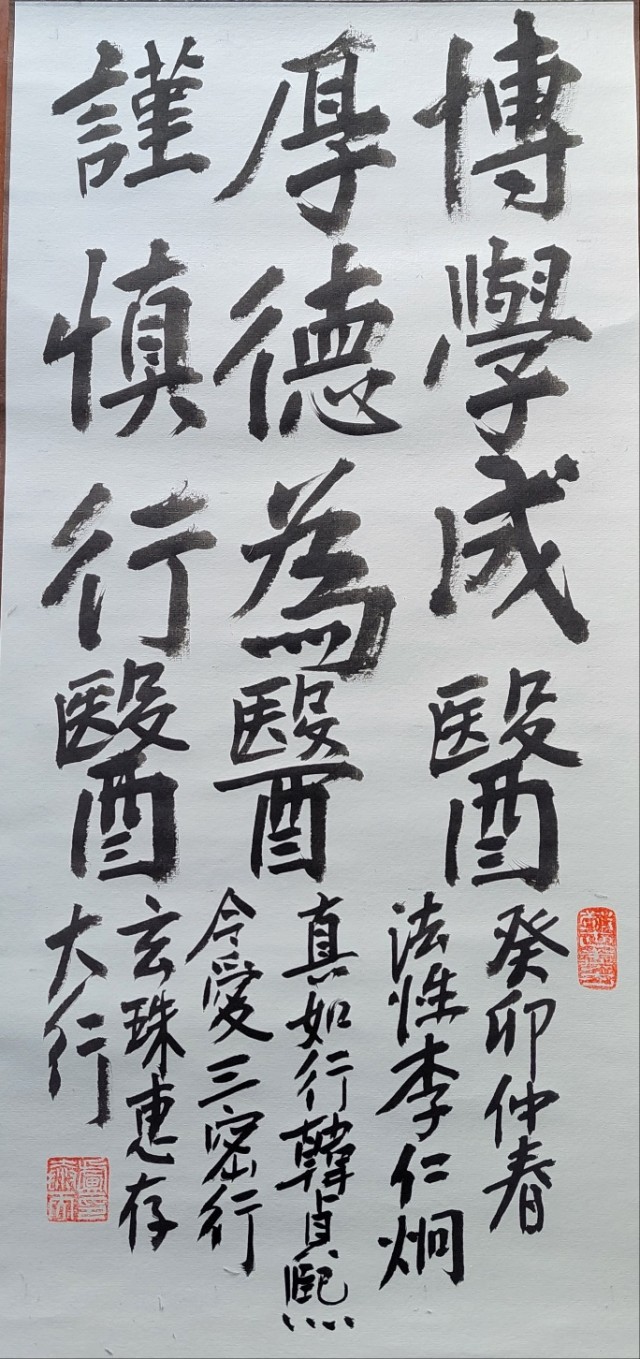 博學成醫
厚德為醫
謹慎行醫
癸卯仲春
法性李仁炯
真如行韓貞熙
令愛三密行
玄珠惠存
大行